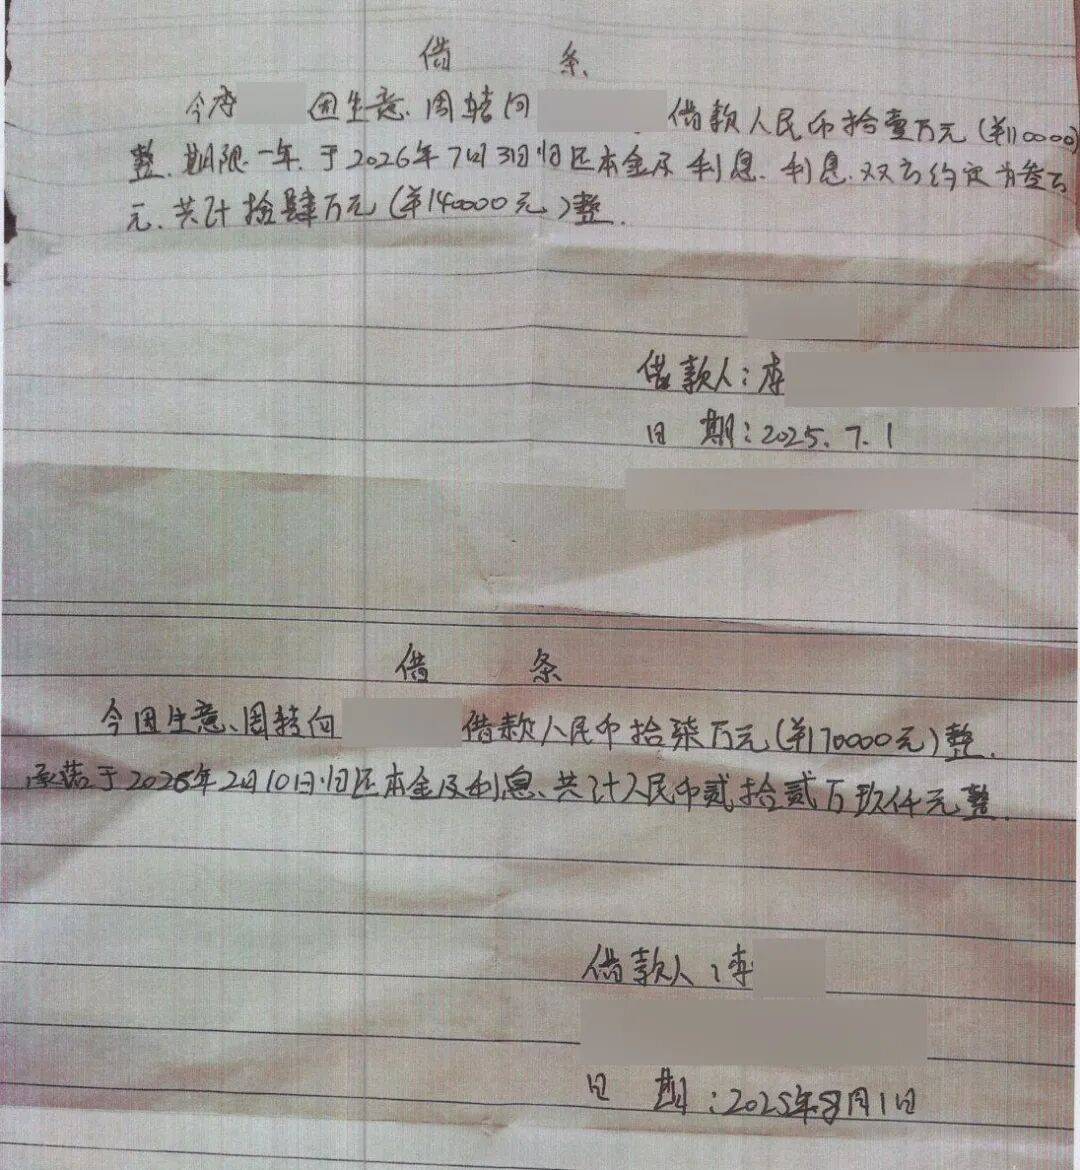 借 条
今李 因生意、周转向 借款人民币拾壹万元(¥110000)
整.期限一年.于2026年7月3日归还本金及利息.利息.双方约定为叁万
元.共计拾肆万元(¥140000元)整.
借款人:李
日 期:2025.7.1
借 条
今因生意、周转向 借款人民币拾柒万元(¥170000元)整.
承诺于2026年2月10日归还本金及利息、共计人民币贰拾贰万玖仟元整.
借款人:李
日 期:2025年8月1日